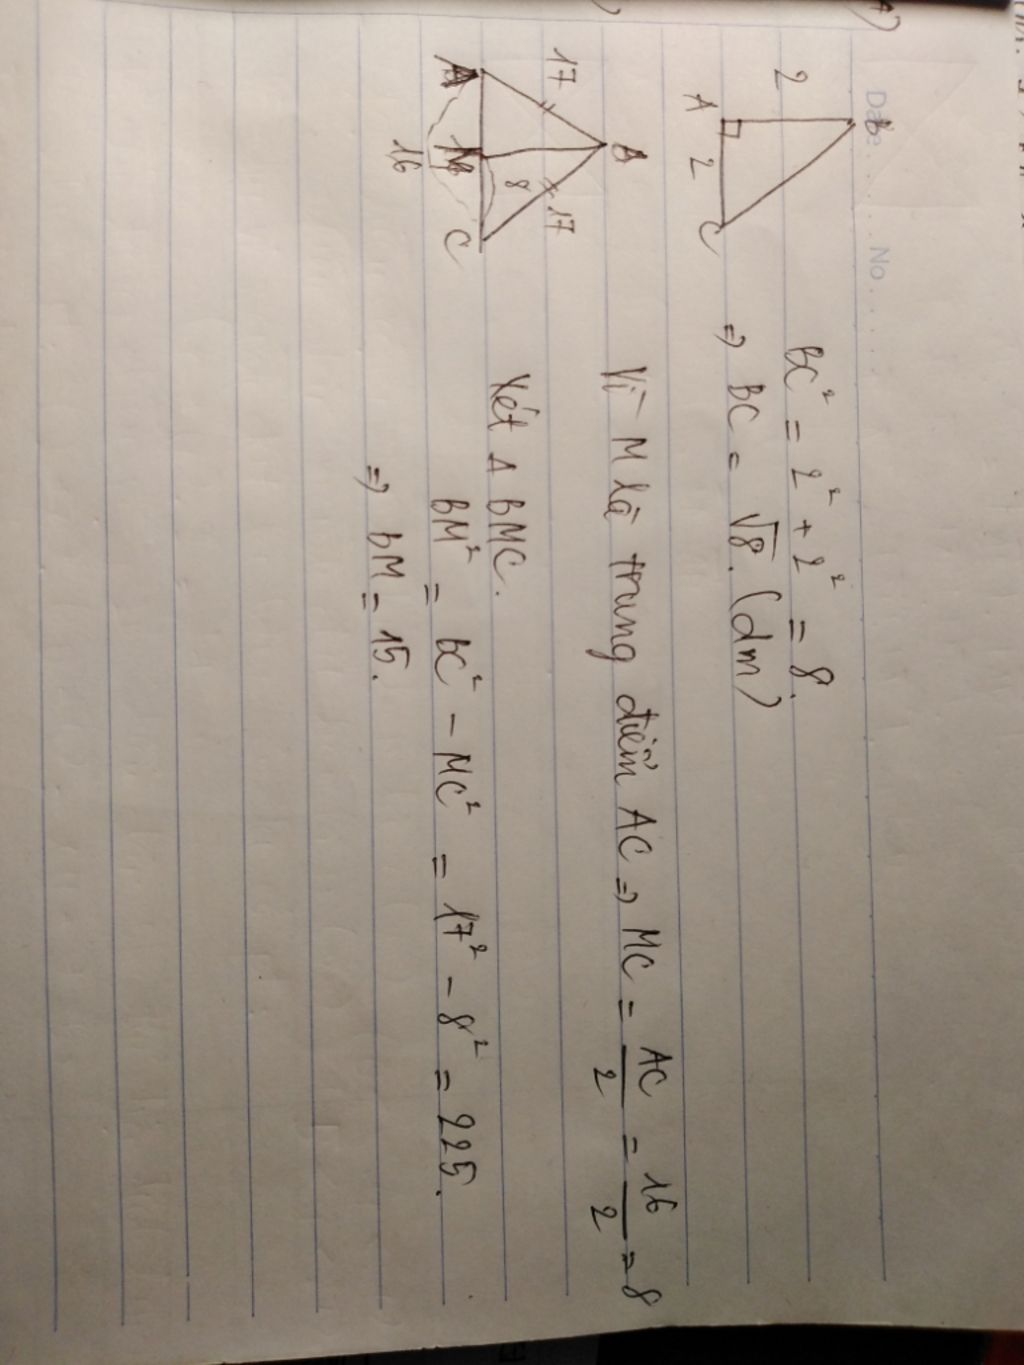 Date. . . . . . No. . . . .
A)
B
2
A
2
C
BC² = 2² + 2² = 8.
⇒ BC = √8. (dm)
B
17
17
8
M
C
16
Vì M là trung điểm AC ⇒ MC = AC/2 = 16/2 = 8
Xét Δ BMC.
BM² = BC² - MC² = 17² - 8² = 225.
⇒ BM = 15.